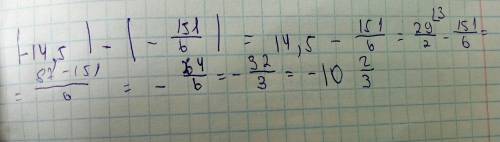 |-14,5| - |- 151/6| = 14,5 - 151/6 = 29/2 ⌊3 - 151/6 =
= 87-151/6 = - 64/6 = - 32/3 = -10 2/3